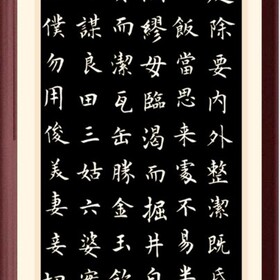 除要內外整潔既昏
飯當思來處不易半
繆毋臨渴而掘井自
而潔瓦缶勝金玉飲
謀良田三姑六婆實
僕勿用俊美妻妾